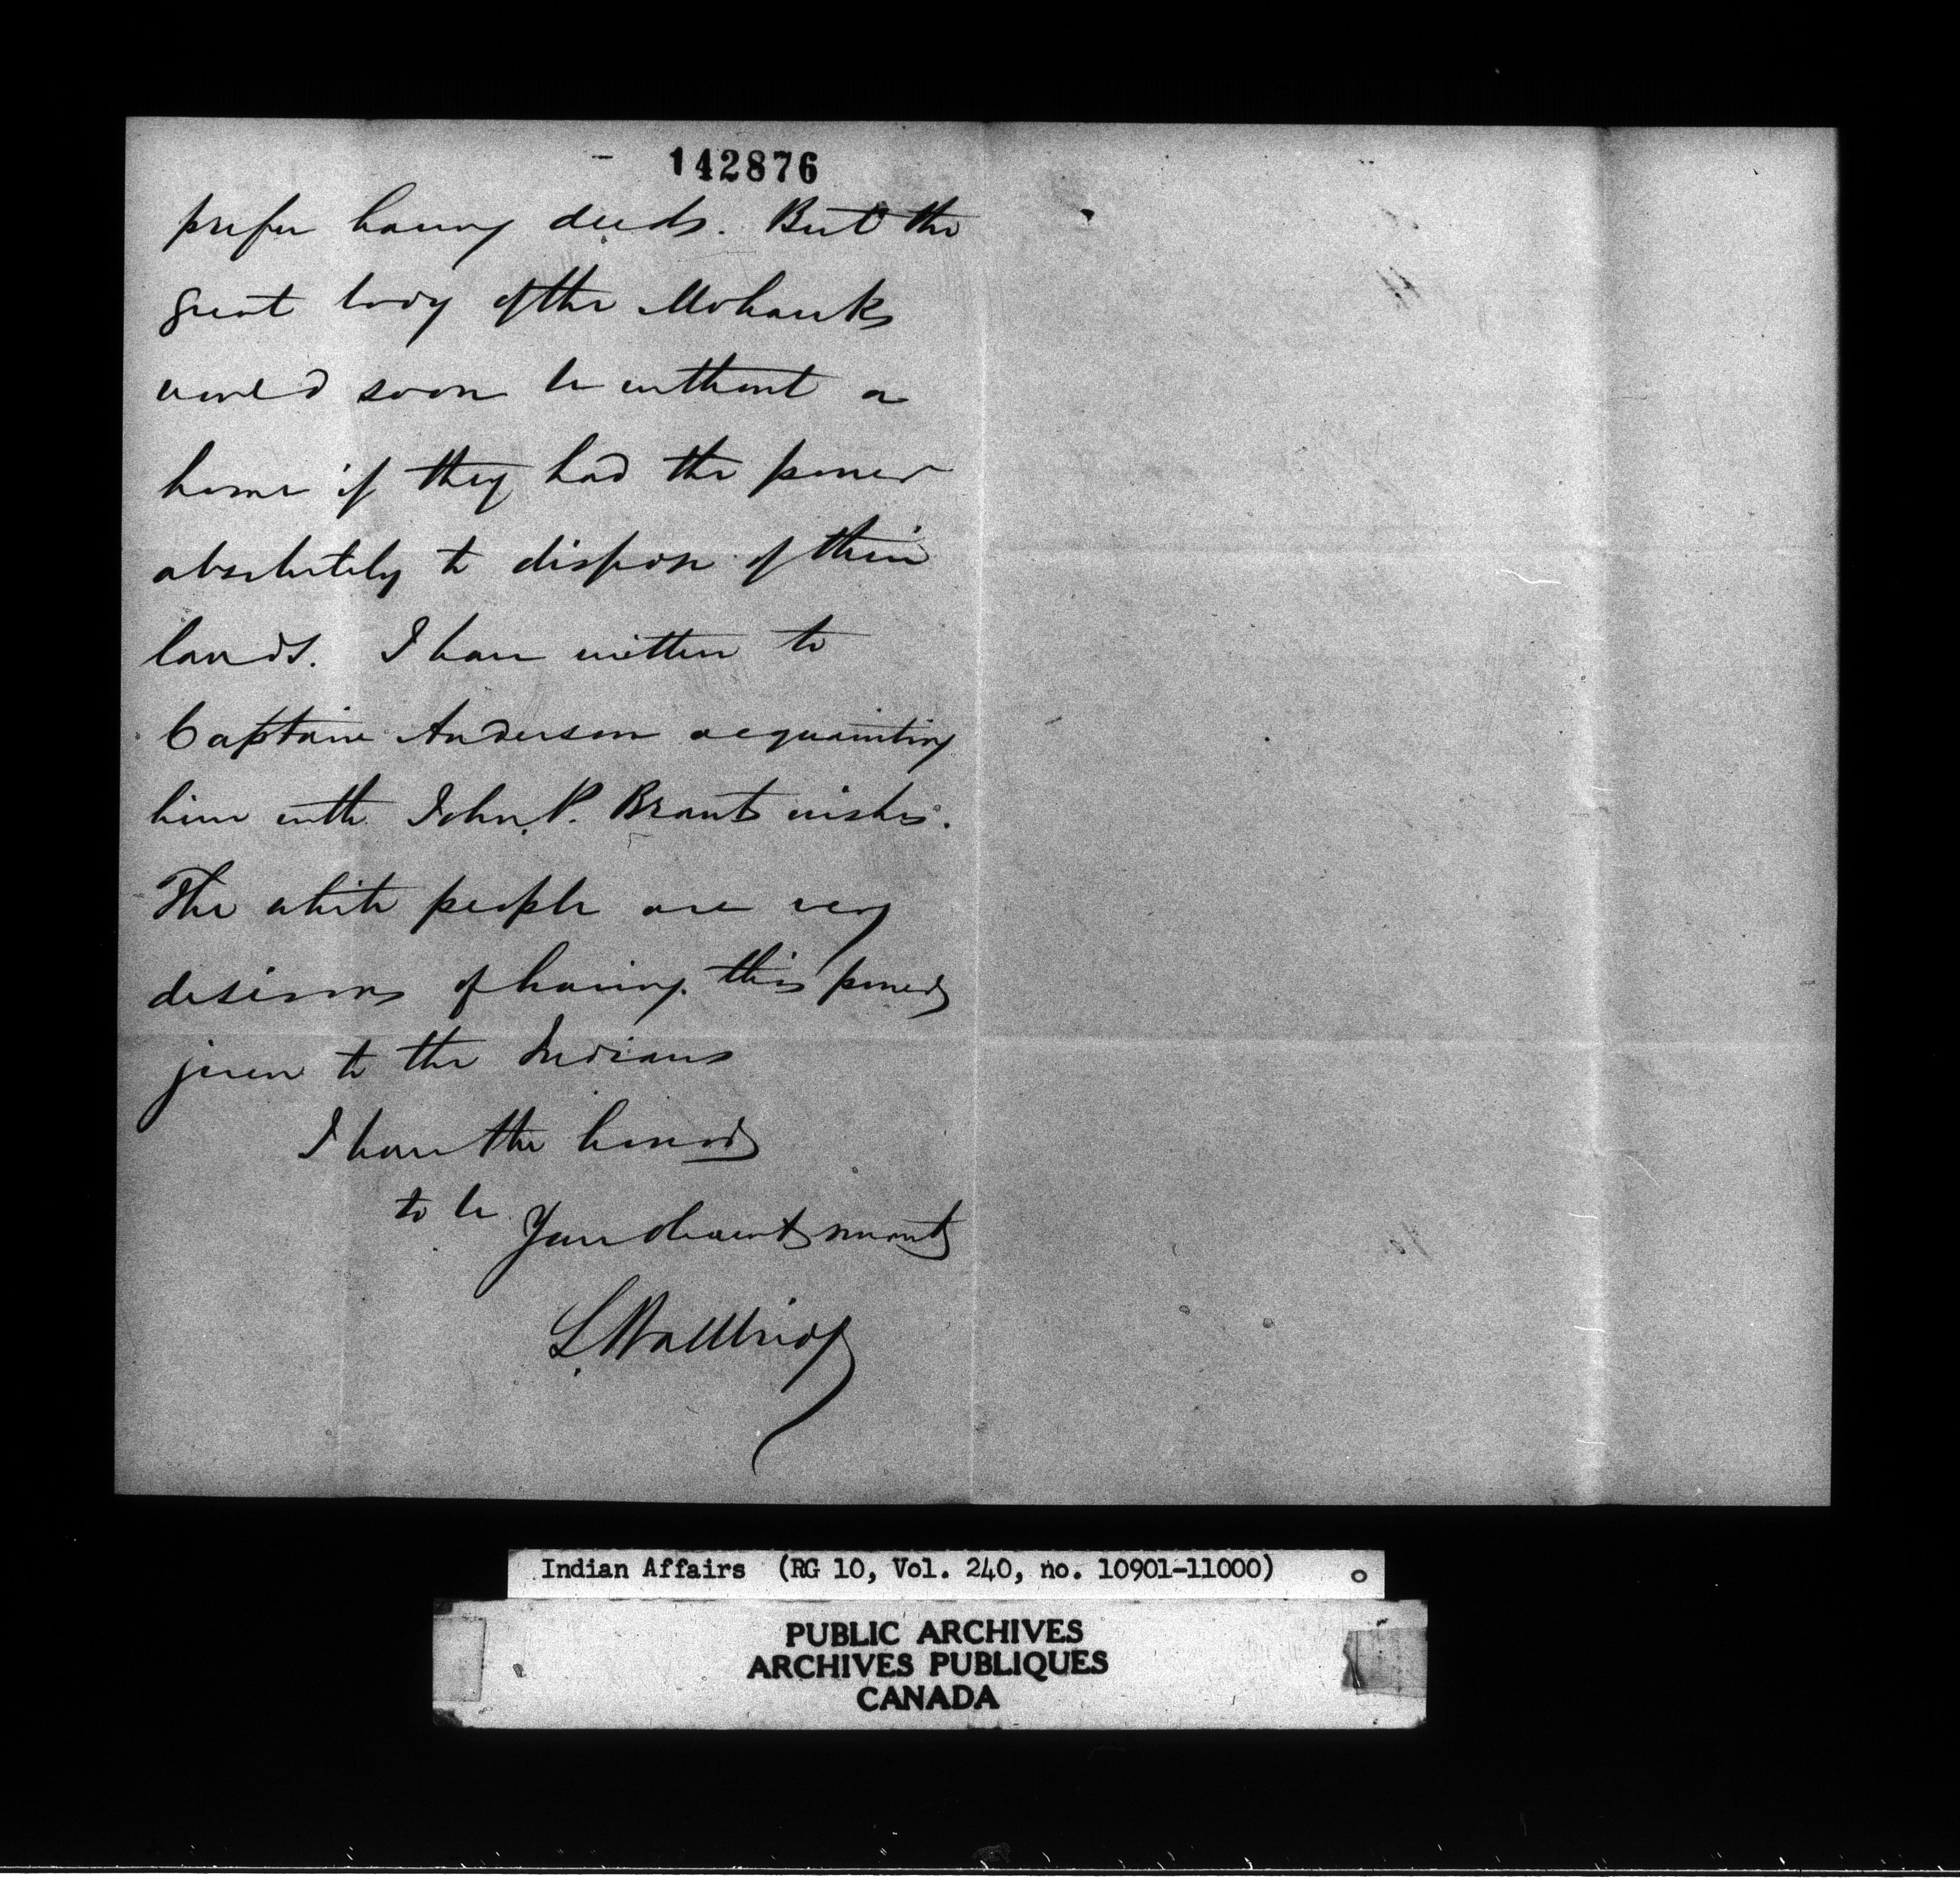 142876
prefer having deeds. But the
great body of the Mohawks
would soon be without a
home if they had the power
absolutely to dispose of their
lands. I have written to
Captain Anderson acquainting
him with John P. Brants wishes.
The white people are very
desirous of having this power
given to the Indians
I have the honor
to be
Your obedient servant
L Wallbridge
Indian Affairs (RG 10, Vol. 240, no. 10901-11000)
PUBLIC ARCHIVES
ARCHIVES PUBLIQUES
CANADA